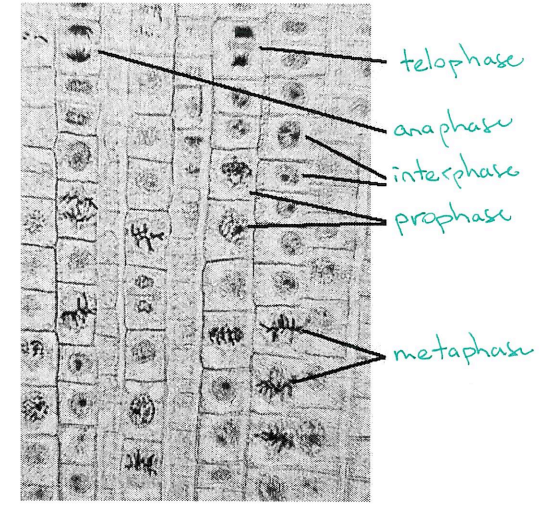 telophase
anaphase
interphase
prophase
metaphase